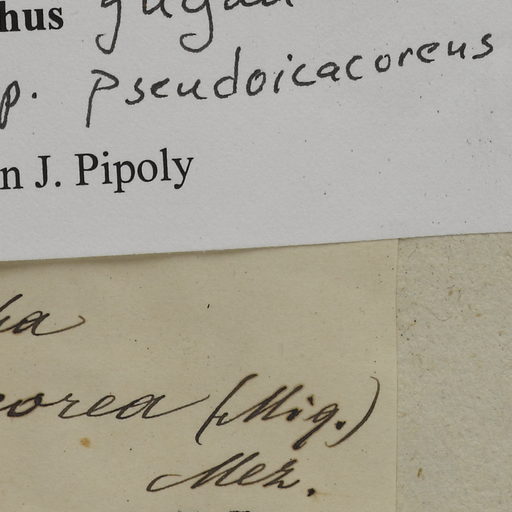 hus
p. pseudoicacoreus
n J. Pipoly
ha
corea (Miq.)
Mez.